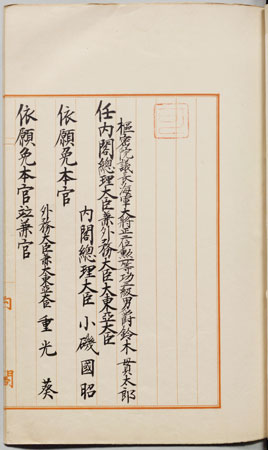 樞密院議長海軍大將正三位勲一等功三級男爵鈴木貫太郎
任内閣總理大臣兼外務大臣大東亞大臣
内閣總理大臣 小磯國昭
依願免本官
外務大臣兼大東亞大臣 重光葵
依願免本官竝兼官
内閣